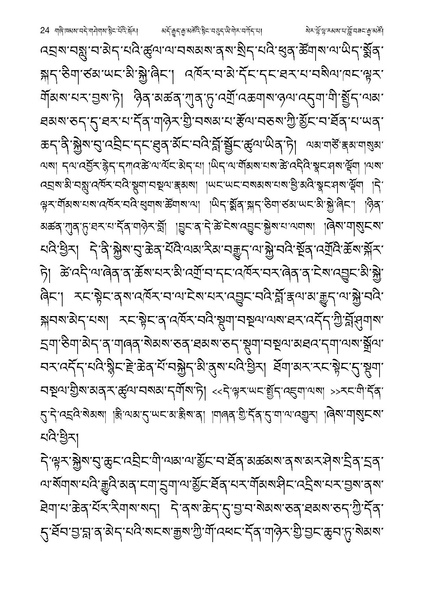 24 གཞི་ཁམས་བདེ་གཤེགས་སྙིང་པོའི་སྐོར། མདོ་རྒྱུད་རྒྱ་མཚོའི་སྙིང་བཅུད་ཡི་གེར་བཀོད་པ། སེར་བྱེ་ལྷ་རམས་པ་བློ་བཟང་རྒྱ་མཚོ།
འབྲས་བསླུ་བ་མེད་པའི་ཚུལ་ལ་བསམས་ནས་སྲིད་པའི་ཕུན་ཚོགས་ལ་ཡིད་སྨོན་
སྐད་ཅིག་ཙམ་ཡང་མི་སྐྱེ་ཞིང་། འཁོར་བ་མེ་དོང་དང་ཐར་པ་བསིལ་ཁང་ལྟར་
གོམས་པར་བྱས་ཏེ། ཉིན་མཚན་ཀུན་ཏུ་འགྲོ་འཆགས་ཉལ་འདུག་གི་སྤྱོད་ལམ་
ཐམས་ཅད་དུ་ཐར་པ་དོན་གཉེར་གྱི་བསམ་པ་རྩོལ་བཅས་ཀྱི་མྱོང་བ་ཐོན་པ་ཡན་
ཆད་ནི་སྐྱེས་བུ་འབྲིང་དང་ཐུན་མོང་བའི་བློ་སྦྱོང་ཚུལ་ཡིན་ཏེ། ལམ་གཙོ་རྣམ་གསུམ་
ལས། དལ་འབྱོར་རྙེད་དཀའ་ཚེ་ལ་ལོང་མེད་པ། །ཡིད་ལ་གོམས་པས་ཚེ་འདིའི་སྣང་ཤས་ལྡོག །ལས་
འབྲས་མི་བསླུ་འཁོར་བའི་སྡུག་བསྔལ་རྣམས། །ཡང་ཡང་བསམས་པས་ཕྱི་མའི་སྣང་ཤས་ལྡོག །དེ་
ལྟར་གོམས་པས་འཁོར་བའི་ཕུན་ཚོགས་ལ། །ཡིད་སྨོན་སྐད་ཅིག་ཙམ་ཡང་མི་སྐྱེ་ཞིང་། །ཉིན་
མཚན་ཀུན་ཏུ་ཐར་པ་དོན་གཉེར་བློ། །བྱུང་ན་དེ་ཚེ་ངེས་འབྱུང་སྐྱེས་པ་ལགས། །ཞེས་གསུངས་
པའི་ཕྱིར། དེ་ནི་སྐྱེས་བུ་ཆེན་པོའི་ལམ་རིམ་བརྒྱུད་ལ་སྐྱེ་བའི་སྔོན་འགྲོའི་ཆོས་སྐོར་
ཏེ། ཚེ་འདི་ལ་ཞེན་ན་ཆོས་པར་མི་འགྲོ་བ་དང་འཁོར་བར་ཞེན་ན་ངེས་འབྱུང་མི་སྐྱེ་
ཞིང་། རང་སྟེང་ནས་འཁོར་བ་ལ་ངེས་པར་འབྱུང་བའི་བློ་རྣལ་མ་རྒྱུད་ལ་སྐྱེ་བའི་
སྐབས་མེད་པས། རང་སྟེང་ན་འཁོར་བའི་སྡུག་བསྔལ་ལས་ཐར་འདོད་ཀྱི་བློ་ཤུགས་
དྲག་ཅིག་མེད་ན་གཞན་སེམས་ཅན་ཐམས་ཅད་སྡུག་བསྔལ་མཐའ་དག་ལས་སྒྲོལ་
བར་འདོད་པའི་སྙིང་རྗེ་ཆེན་པོ་བསྐྱེད་མི་ནུས་པའི་ཕྱིར། ཐོག་མར་རང་སྟེང་དུ་སྡུག་
བསྔལ་གྱིས་མནར་ཚུལ་བསམ་དགོས་ཏེ། <<དེ་ལྟར་ཡང་སྤྱོད་འཇུག་ལས། >>རང་གི་དོན་
དུ་དེ་འདྲའི་སེམས། །རྨི་ལམ་དུ་ཡང་མ་རྨིས་ན། །གཞན་གྱི་དོན་དུ་ག་ལ་འགྱུར། །ཞེས་གསུངས་
པའི་ཕྱིར།
དེ་ལྟར་སྐྱེས་བུ་ཆུང་འབྲིང་གི་ལམ་ལ་མྱོང་བ་ཐོན་མཚམས་ནས་མར་ཤེས་དྲིན་དྲན་
ལ་སོགས་པའི་རྒྱུའི་མན་ངག་དྲུག་ལ་མྱོང་ཐོན་པར་གོམས་ཤིང་འདྲིས་པར་བྱས་ནས་
ཐེག་པ་ཆེན་པོར་རིགས་སད། དེ་ནས་ཆེད་དུ་བྱ་བ་སེམས་ཅན་ཐམས་ཅད་ཀྱི་དོན་
དུ་ཐོབ་བྱ་བླ་ན་མེད་པའི་སངས་རྒྱས་ཀྱི་གོ་འཕང་དོན་གཉེར་གྱི་བྱང་ཆུབ་ཏུ་སེམས་